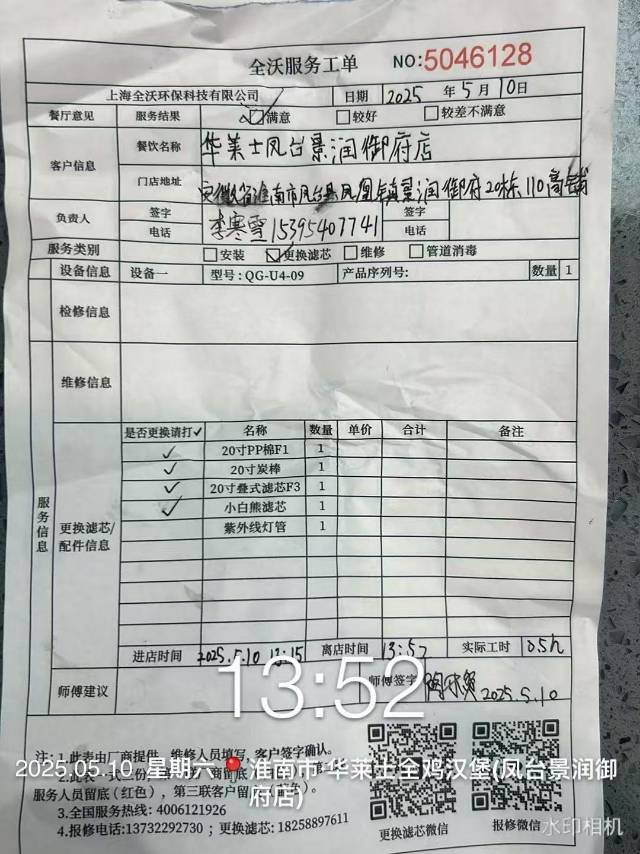 全沃服务工单 NO:5046128
上海全沃环保科技有限公司 日期 2025 年 5 月 10 日
餐厅意见 服务结果 满意 较好 较差不满意
客户信息 餐饮名称 华莱士凤台景润御府店
门店地址 安徽省淮南市凤台县凤凰镇景润御府20栋110商铺
负责人 签字 李寒雪 签字
电话 15395407741 电话
服务类别 安装 更换滤芯 维修 管道消毒
设备信息 设备一 型号:QG-U4-09 产品序列号: 数量 1
检修信息
维修信息
服务信息
更换滤芯/配件信息
是否更换请打✓ 名称 数量 单价 合计 备注
✓ 20寸PP棉F1 1
✓ 20寸炭棒 1
✓ 20寸叠式滤芯F3 1
✓ 小白熊滤芯 1
紫外线灯管 1
进店时间 2025.5.10 13:15 离店时间 13:57 实际工时 05h
师傅建议 师傅签字 2025.5.10
13:52
注:1.此表由厂商提供,维修人员填写,客户签字确认。
2.此表一式三份
服务人员留底(红色),第三联客户留
3.全国服务热线: 4006121926
4.报修电话:13732292730 ; 更换滤芯: 18258897611
更换滤芯微信 报修微信
2025.05.10 星期六 淮南市·华莱士全鸡汉堡(凤台景润御
府店)
水印相机